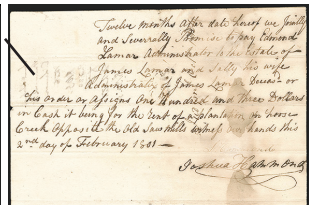 Twelve months after date hereof we Jointly
and Severally Promise to pay Edmond
Lamar Administrator to the Estate of
James Lamar and Sally his wife
Administratrix of James Lamar Decasd or
his order or assigns One Hundred and Three Dollars
in Cash it being for the Rent of a plantation on horse
Creek Opposite the Old Saw Mills witness our hands this
2nd day of February 1801 —
Joshua Hammond